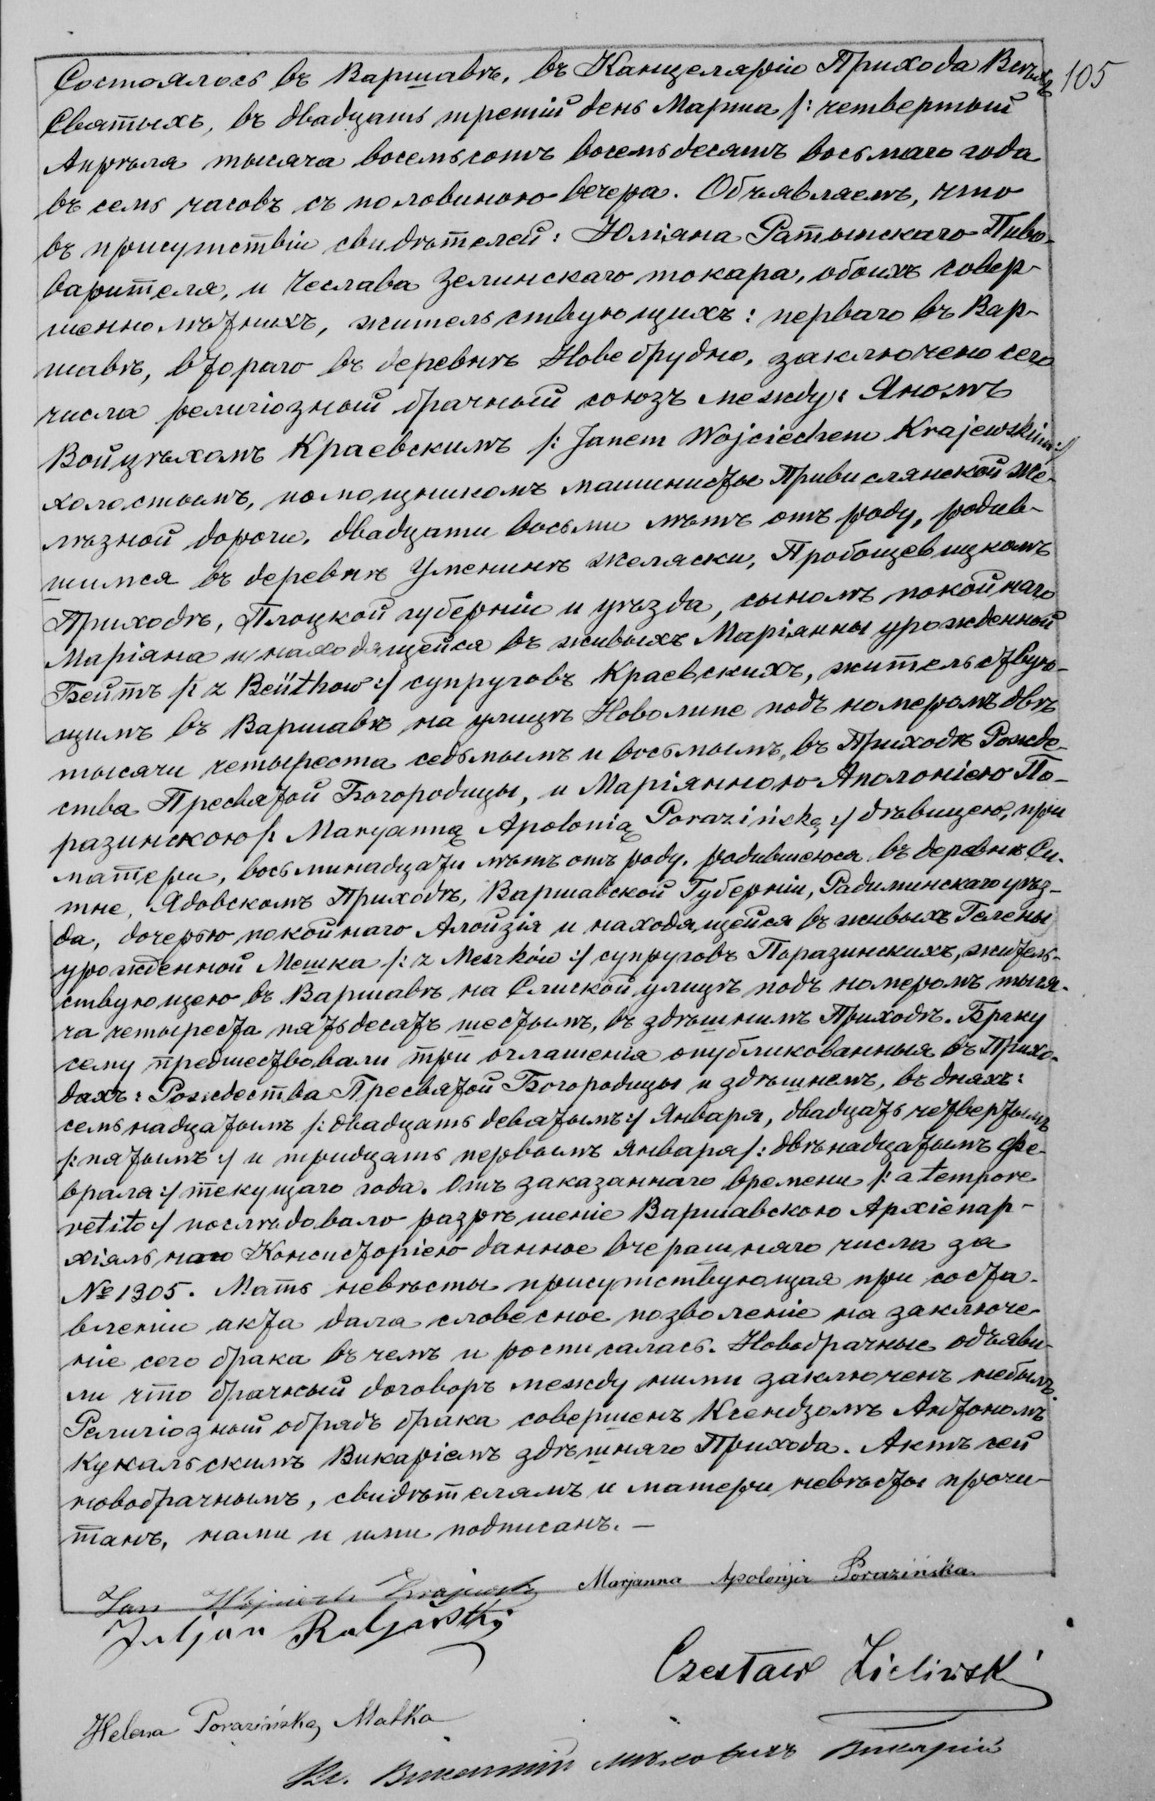 Состоялось въ Варшавѣ, въ Канцеляріи Прихода Всѣхъ 105
Святыхъ, въ двадцать третій день Марта /: четвертый
Апрѣля тысяча восемьсотъ восемьдесятъ восьмаго года
въ семь часовъ съ половиною вечера. Объявляемъ, что
въ присутствіи свидѣтелей: Юліяна Ратынскаго Пиво-
варителя, и Чеслава Зелинскаго токара, обоихъ совер-
шеннолѣтнихъ, жительствующихъ: перваго въ Вар-
шавѣ, втораго въ деревнѣ Новебрудно, заключено сего
числа религіозный брачный союзъ между: Яномъ
Войцѣхомъ Краевскимъ /: Janem Wojciechem Krajewskim :/
холостымъ, помощникомъ машинисты Привислянской Же-
лѣзной дороги, двадцати восьми лѣтъ отъ роду, родив-
шимся въ деревнѣ Уменинѣ Желяски, Пробощевицкомъ
Приходѣ, Плоцкой губерніи и уѣзда, сыномъ покойнаго
Маріяна и находящейся въ живыхъ Маріянны урожденной
Бейтъ /: z Beüthow :/ супруговъ Краевскихъ, жительствую-
щимъ въ Варшавѣ на улицѣ Новолипе подъ номеромъ двѣ
тысячи четыреста седьмымъ и восьмымъ, въ Приходѣ Рожде-
ства Пресвятой Богородицы, и Маріянною Аполоніею По-
разинскою /: Maryanną Apolonią Porazińską :/ дѣвицею, при
матери, восьминадцати лѣтъ отъ роду, родившеюся въ деревнѣ Си-
тне, Ядовскомъ Приходѣ, Варшавской Губерніи, Радиминскаго уѣз-
да, дочерью покойнаго Алойзія и находящейся въ живыхъ Гелены
урожденной Мешка /: z Meszków :/ супруговъ Поразинскихъ, житель-
ствующею въ Варшавѣ на Слиской улицѣ подъ номеромъ тыся-
ча четыреста пятьдесятъ шестымъ, въ здѣшнимъ Приходѣ. Браку
сему предшествовали три оглашенія опубликованныя въ Прихо-
дахъ: Рождества Пресвятой Богородицы и здѣшнемъ, въ дняхъ:
семьнадцатымъ /: двадцать девятымъ :/ Января, двадцать четвертымъ
/: пятымъ :/ и тридцать первымъ Января /: двѣнадцатымъ Фе-
враля :/ текущаго года. Отъ заказаннаго времени /: a tempore
vetito :/ послѣдовало разрѣшеніе Варшавскою Архіепар-
хіяльною Консисторіею данное вчерашняго числа за
№ 1305. Мать невѣсты присутствующая при соста-
вленіи акта дала словесное позволеніе на заключе-
ніе сего брака въ чемъ и росписалась. Новобрачные объяви-
ли что брачный договоръ между ними заключенъ небылъ.
Религіозный обрядъ брака совершенъ Ксендзомъ Антономъ
Кукальскимъ Викаріемъ здѣшняго Прихода. Актъ сей
новобрачнымъ, свидѣтелямъ и матери невѣсты прочи-
танъ, нами и ими подписанъ. —
Jan Wojciech Krajewski Marjanna Apolonija Porazińska
Juljan Ratyński
Czesław Zieliński
Helena Porazińska, Matka
Кс. Викарій